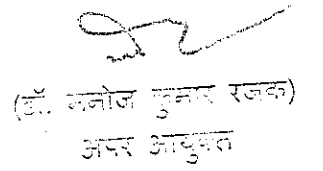 (डॉ. मनोज कुमार रजक)
अपर आयुक्त